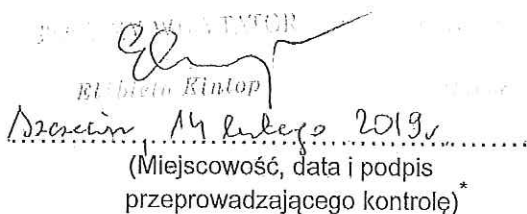 Elżbieta Kintop
Szczecin, 14 lutego 2019r.
(Miejscowość, data i podpis
przeprowadzającego kontrolę)*